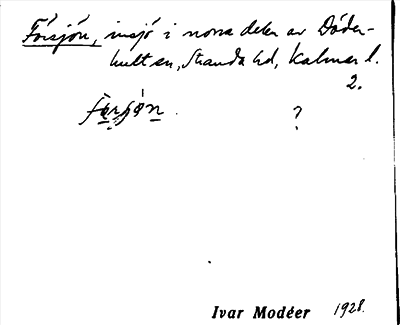 Försjön, insjö i norra delen av Döder-
hult sn, Stranda hd, Kalmar l.
2.
?
Ivar Modéer 1928.